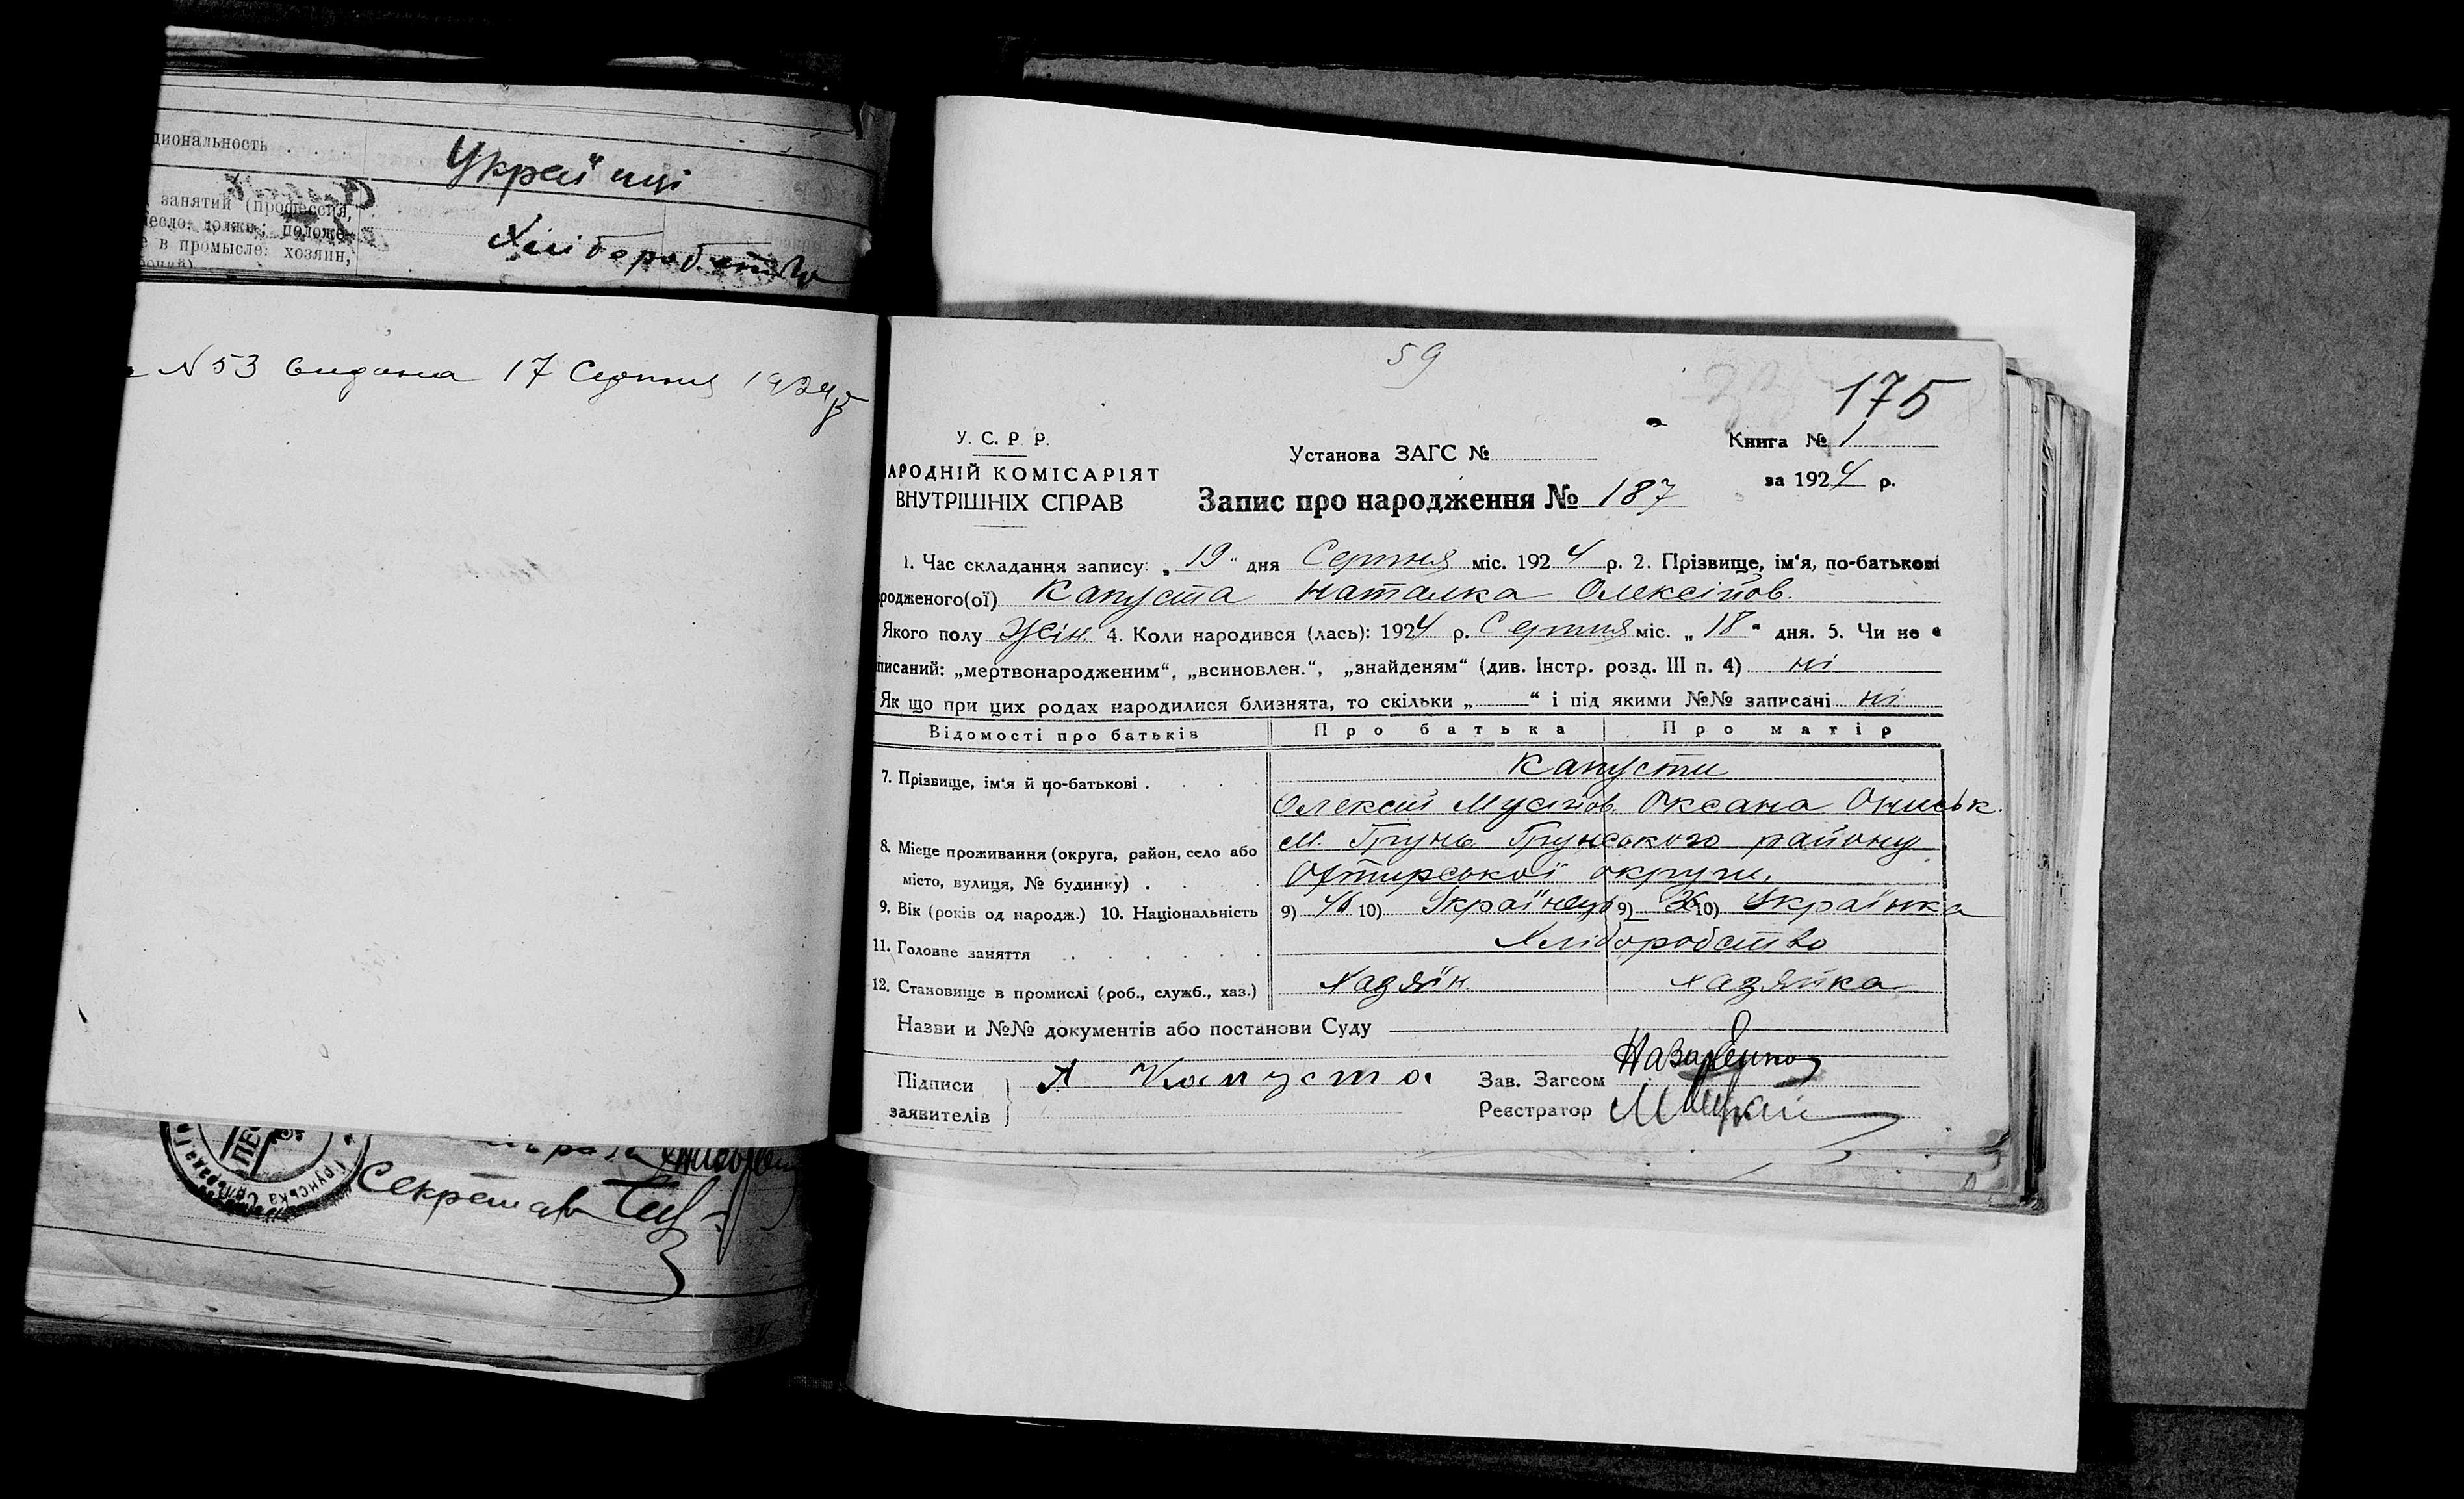 ціональность . . .
Украї'нці
занятий (профессия,
есло: должн.; положе-
е в промысле: хозяин,
Хліборобство
N 53 видана 17 Серпня 1924 р
59
175
У. С. Р. Р.
АРОДНІЙ КОМІСАРІЯТ
ВНУТРІШНІХ СПРАВ
Установа ЗАГС №
Книга № 1
за 1924 р.
Запис про народження № 187
1. Час складання запису: „ 19 " дня Серпня міс. 1924 р. 2. Прізвище, ім'я, по-батькові
родженого(ої) Капуста Наталка Олексійов.
Якого полу Жін. 4. Коли народився (лась): 1924 р. Серпня міс. „ 18 " дня. 5. Чи не є
писаний: „мертвонародженим", „всиновлен.", „знайденям" (див. Інстр. розд. III п. 4) ні
Як що при цих родах народилися близнята, то скільки „——" і під якими №№ записані ні
Відомості про батьків Про батька Про матір
Капусти
7. Прізвище, ім'я й по-батькові .
Олексій Мусійов. Оксана Ониськ.
м. Грунь Грунського району
8. Місце проживання (округа, район, село або
місто, вулиця, № будинку) .
Охтирської округи.
9. Вік (років од народж.) 10. Національність 9) 46 10) Українець 9) 36 10) Українка
11. Головне заняття . . . . . . Хліборобство
12. Становище в промислі (роб., служб., хаз.) Хазяїн Хазяйка
Назви и №№ документів або постанови Суду
Підписи
заявителів
А Капуста
Зав. Загсом Назаренко
Реєстратор
Грунська
Секретар